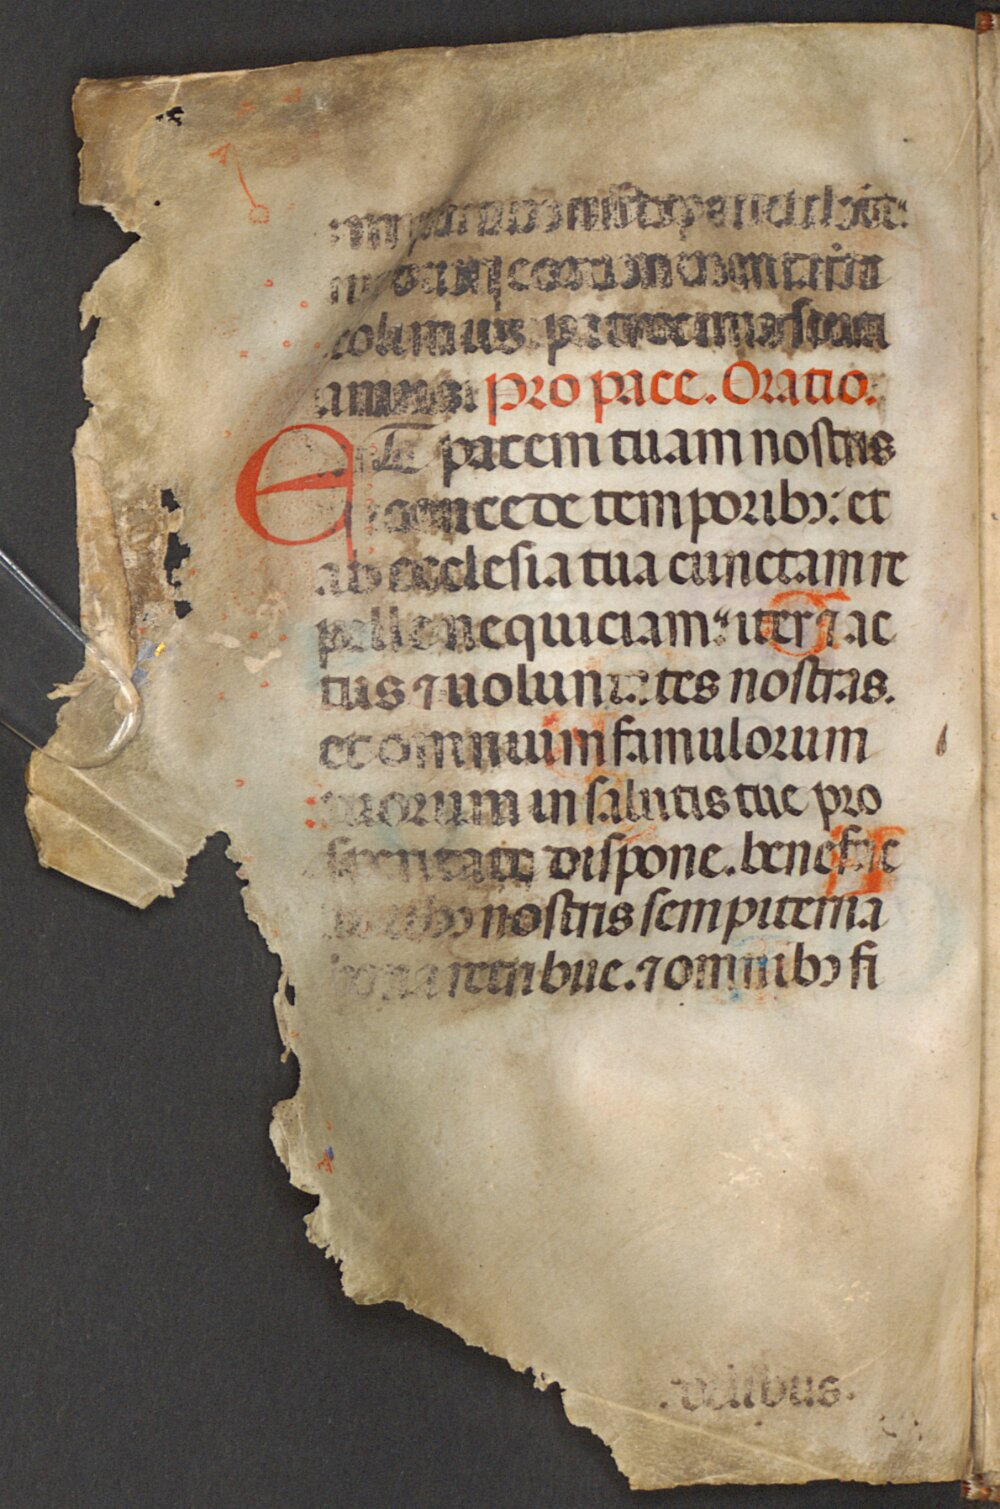 colimus. patrocinia senti
amus. Pro pace. Oratio.
ET pacem tuam nostris
concede temporibꝫ: et
ab ecclesia tua cunctam re
pelle nequiciam. iter ⁊ ac
tus ⁊ uoluntates nostras.
et omnium famulorum
tuorum in salutis tue pro
speritate dispone. benefac
toribꝫ nostris sempiterna
bona retribue. ⁊ omnibꝫ fi
.delibus.